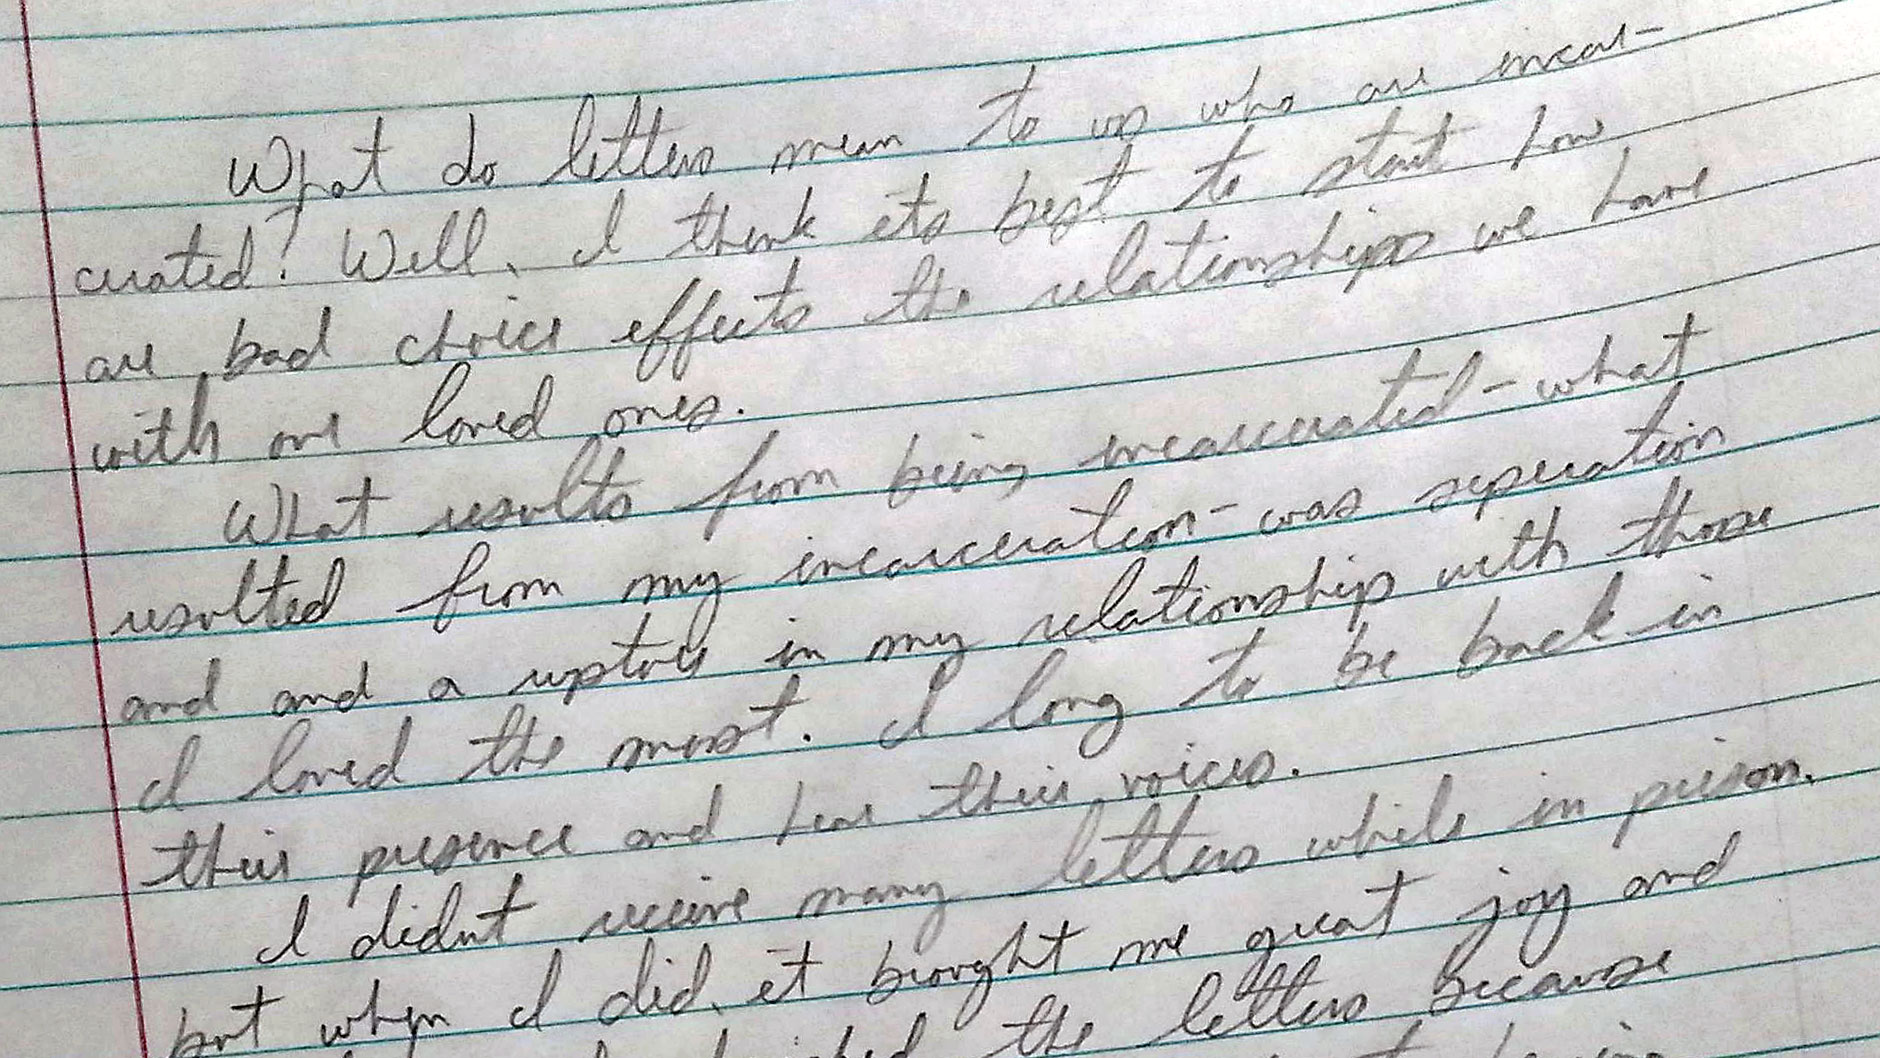 What do letters mean to us who are incar-
cerated? Well, I think its best to start how
are bad choice effects the relationships we have
with our loved ones.
What results from being incarcerated - what
resulted from my incarceration - was seperation
and and a rupture in my relationship with those
I loved the most. I long to be back in
their presence and hear their voices.
I didn't receive many letters while in prison.
but when I did, it brought me great joy and
the letters because